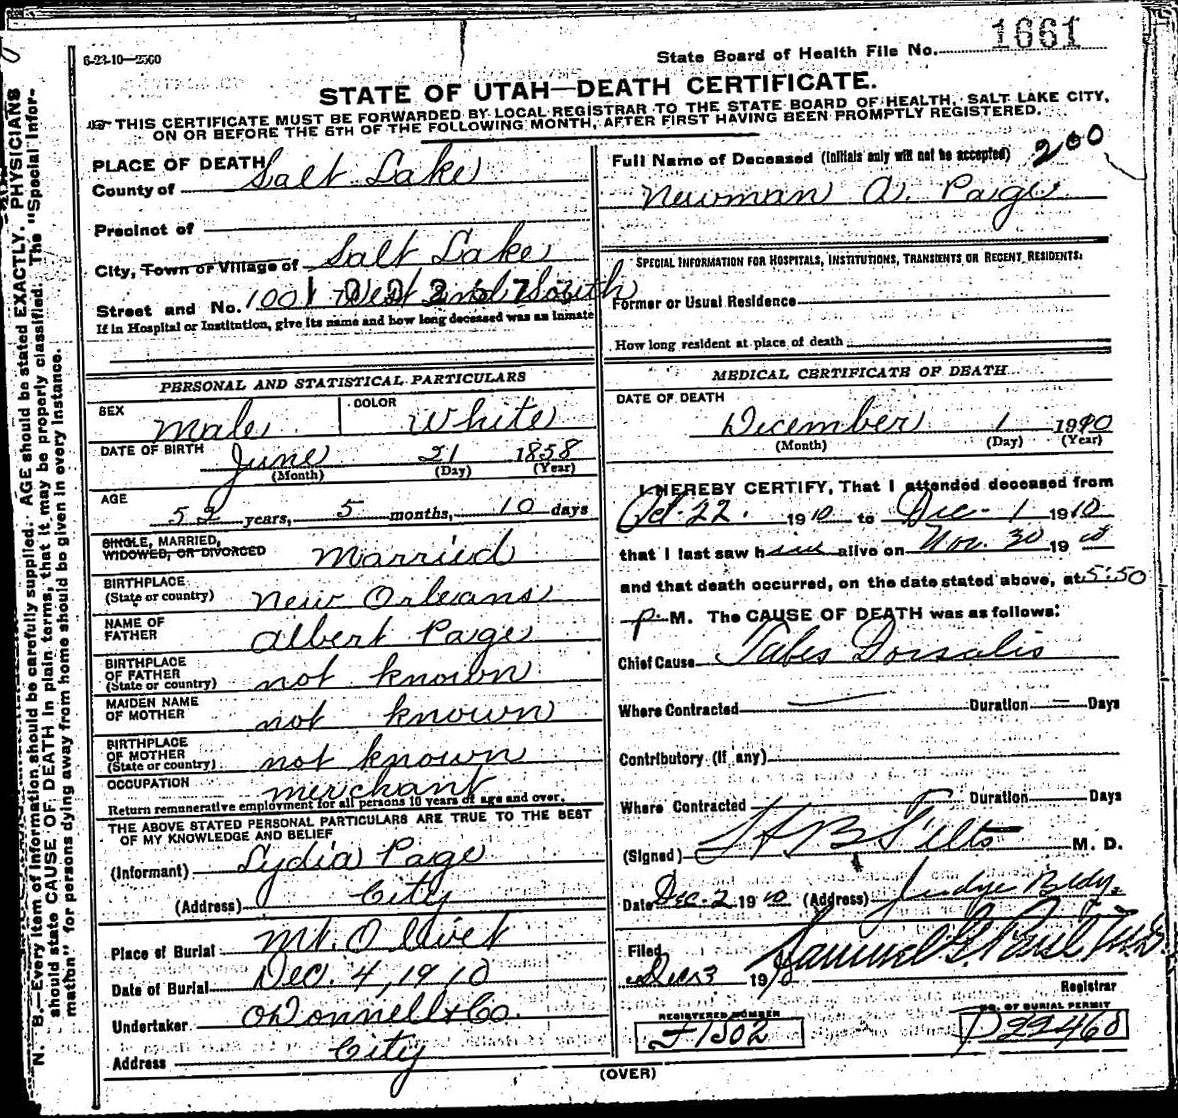 6-23-10—2500
State Board of Health File No. 1661
STATE OF UTAH—DEATH CERTIFICATE.
THIS CERTIFICATE MUST BE FORWARDED BY LOCAL REGISTRAR TO THE STATE BOARD OF HEALTH, SALT LAKE CITY,
ON OR BEFORE THE 5TH OF THE FOLLOWING MONTH, AFTER FIRST HAVING BEEN PROMPTLY REGISTERED.
N. B.—Every item of information should be carefully supplied. AGE should be stated EXACTLY. PHYSICIANS
should state CAUSE OF DEATH in plain terms, that it may be properly classified. The "Special Infor-
mation" for persons dying away from home should be given in every instance.
PLACE OF DEATH
County of Salt Lake
Precinct of
City, Town or Village of Salt Lake
Street and No. 1001 West 2nd South
If in Hospital or Institution, give its name and how long deceased was an inmate
PERSONAL AND STATISTICAL PARTICULARS
SEX Male COLOR White
DATE OF BIRTH June 21 1858
(Month) (Day) (Year)
AGE
52 years, 5 months, 10 days
SINGLE, MARRIED,
WIDOWED, OR DIVORCED Married
BIRTHPLACE
(State or country) New Orleans
NAME OF
FATHER Albert Page
BIRTHPLACE
OF FATHER
(State or country) not known
MAIDEN NAME
OF MOTHER not known
BIRTHPLACE
OF MOTHER
(State or country) not known
OCCUPATION merchant
Return remunerative employment for all persons 10 years of age and over.
THE ABOVE STATED PERSONAL PARTICULARS ARE TRUE TO THE BEST
OF MY KNOWLEDGE AND BELIEF
(Informant) Lydia Page
(Address) City
Place of Burial Mt. Olivet
Date of Burial Dec. 4, 1910
Undertaker O'Donnell & Co.
Address City
Full Name of Deceased (Initials only will not be accepted) 200
Newman A. Page
SPECIAL INFORMATION FOR HOSPITALS, INSTITUTIONS, TRANSIENTS OR RECENT RESIDENTS:
Former or Usual Residence
How long resident at place of death
MEDICAL CERTIFICATE OF DEATH
DATE OF DEATH
December 1 1910
(Month) (Day) (Year)
I HEREBY CERTIFY, That I attended deceased from
Oct. 22. 1910 to Dec. 1 1910
that I last saw him alive on Nov. 30 1910
and that death occurred, on the date stated above, at 5:50
p M. The CAUSE OF DEATH was as follows:
Chief Cause Tabes Dorsalis
Where Contracted — Duration — Days
Contributory (if any)
Where Contracted Duration Days
(Signed) M. D.
Date Dec. 2 1910 (Address) Judge Bldg.
Filed
Dec 3 1910 Samuel G. Paul
Registrar
REGISTERED NUMBER NO. OF BURIAL PERMIT
F1502 P22460
(OVER)